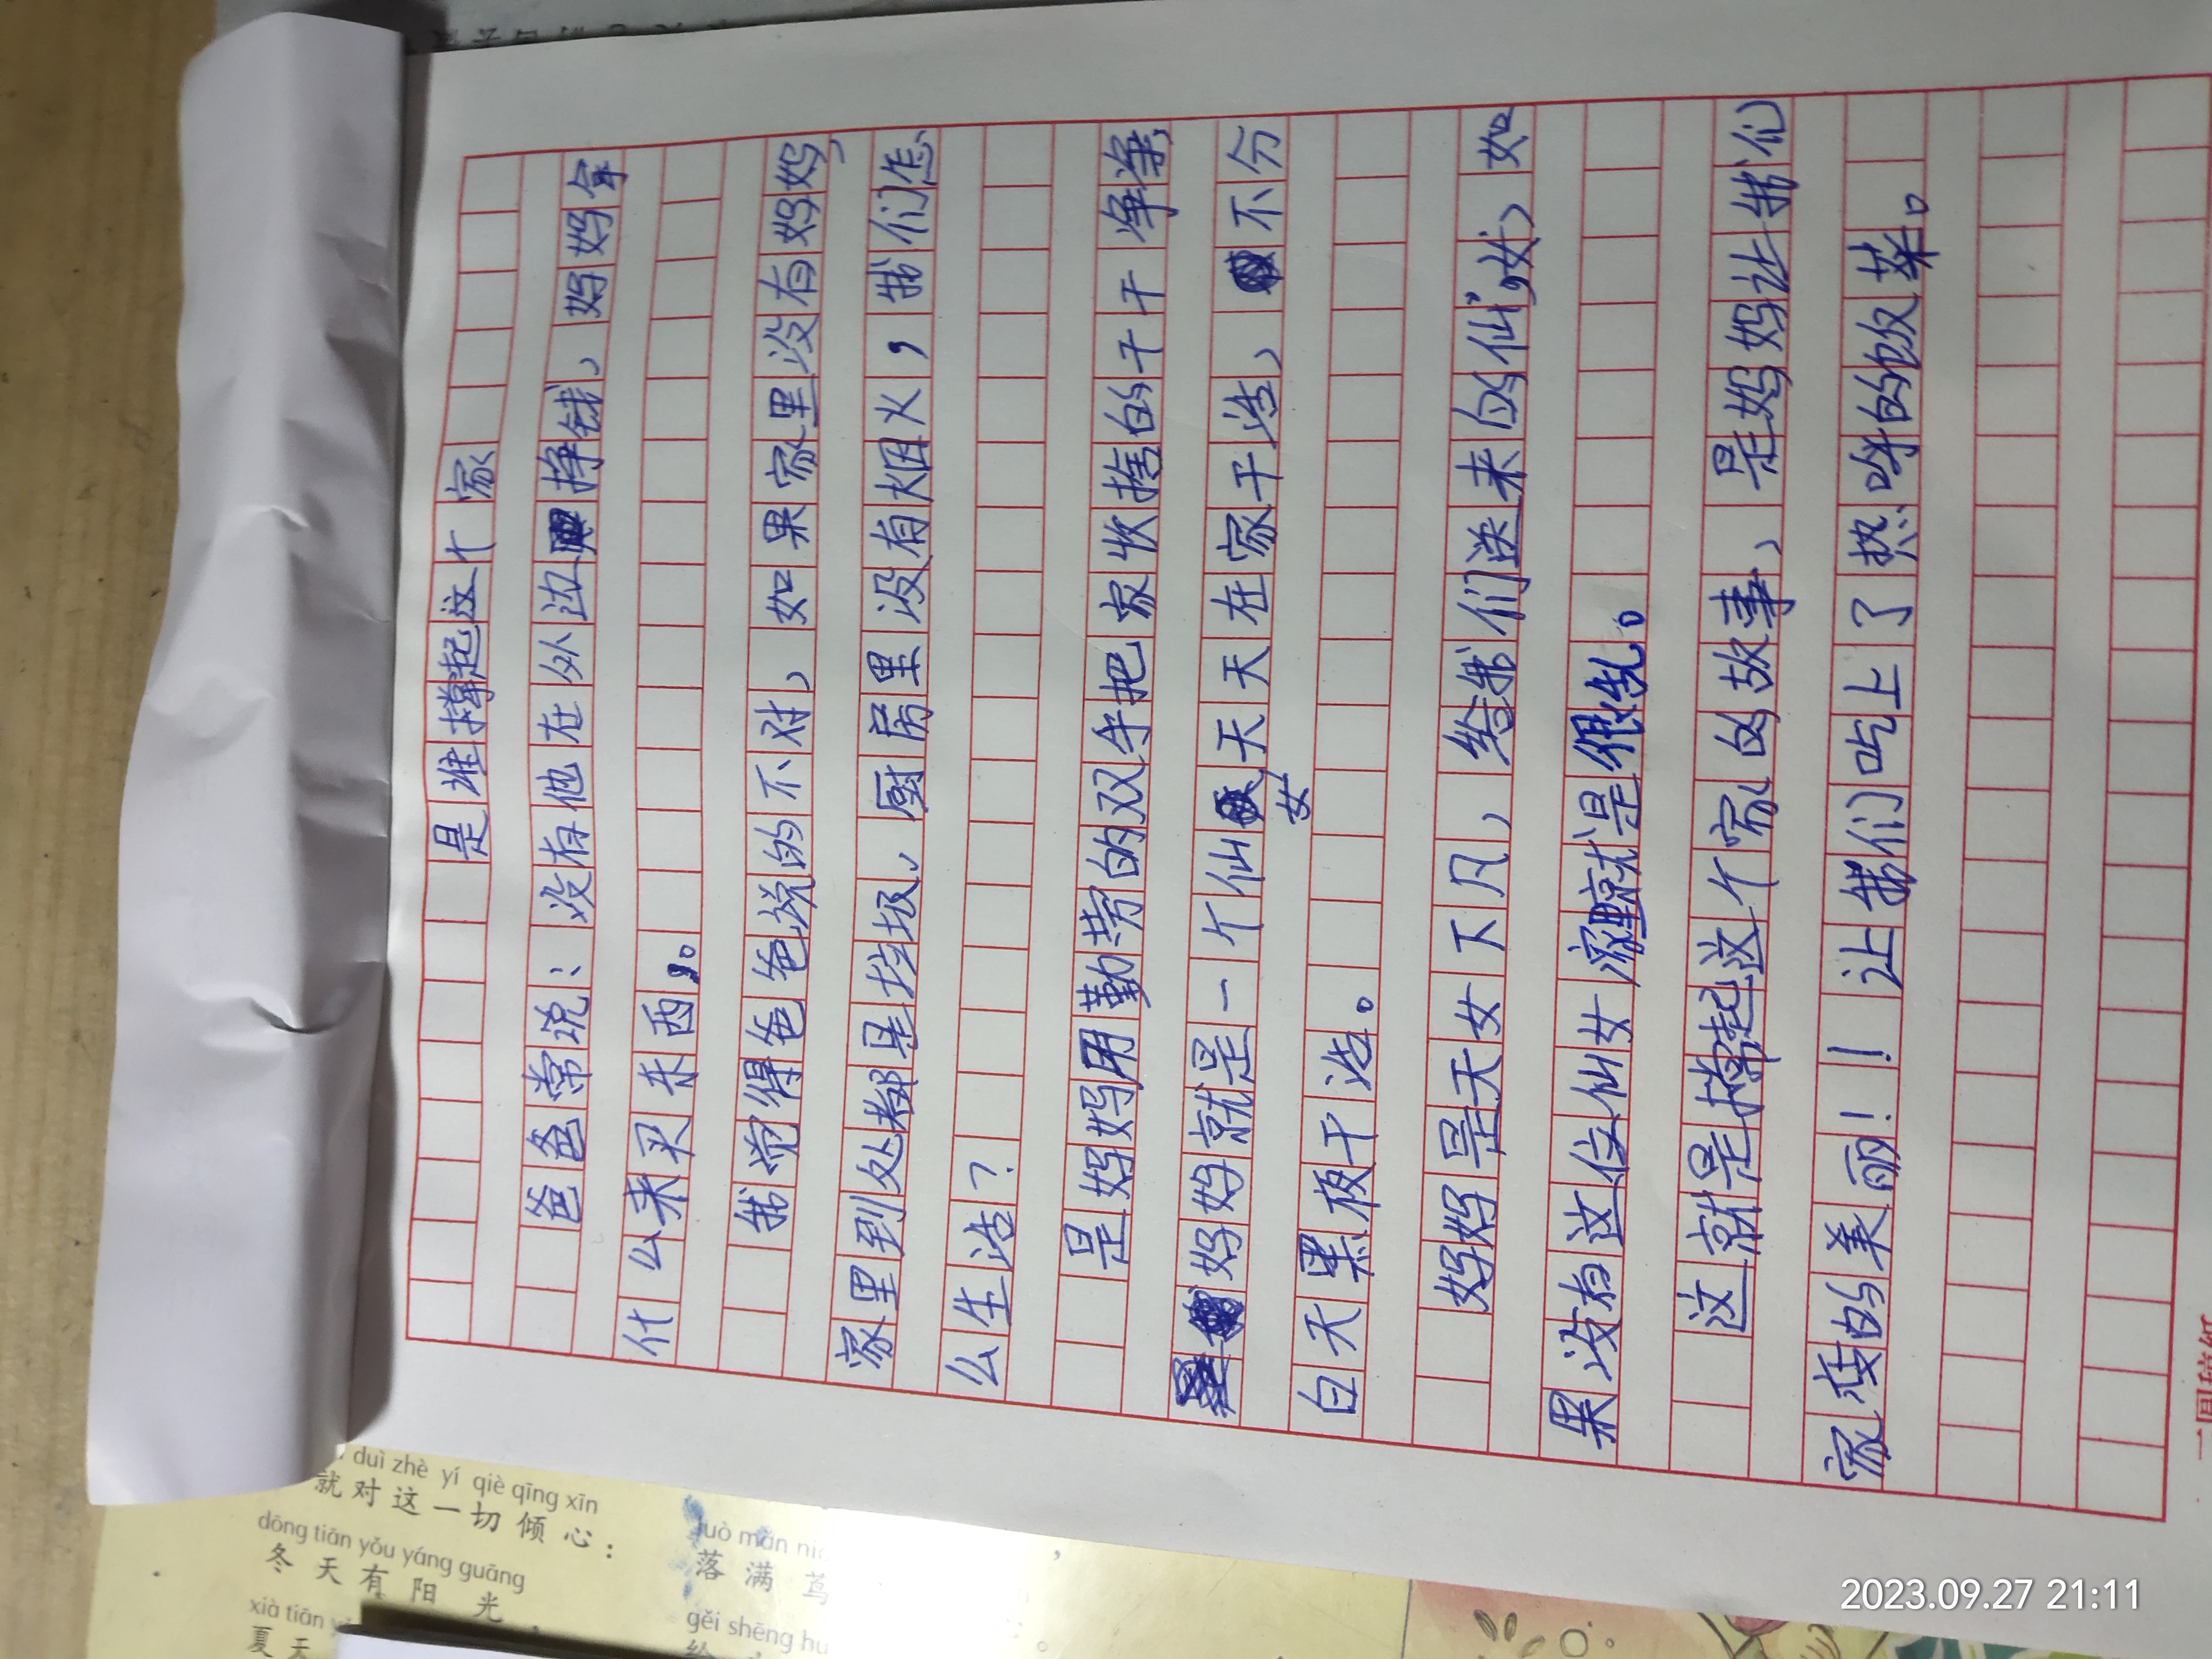 是谁撑起这个家
爸爸常说：没有他在外边挣钱、妈妈拿
什么来买东西。
我觉得爸爸说的不对、如果家里没有妈妈，
家里到处都是垃圾、厨房里没有烟火，我们怎
么生活？
是妈妈用勤劳的双手把家收拾的干干净净，
妈妈就是一个仙女天天在家干活、不分
白天黑夜干活。
妈妈是天女下凡、给我们送来的仙女、如
果没有这位仙女家里就是很乱。
这就是撑起这个家的故事、是妈妈让我们
家变的美丽！！让我们吃上了热呼的饭菜。
duì zhè yí qiè qīng xīn
就对这一切倾心：
dōng tiān yǒu yáng guāng
冬天有阳光
xià tiān
夏天
luò mǎn
落满茑
gěi shēng hu
给
2023.09.27 21:11